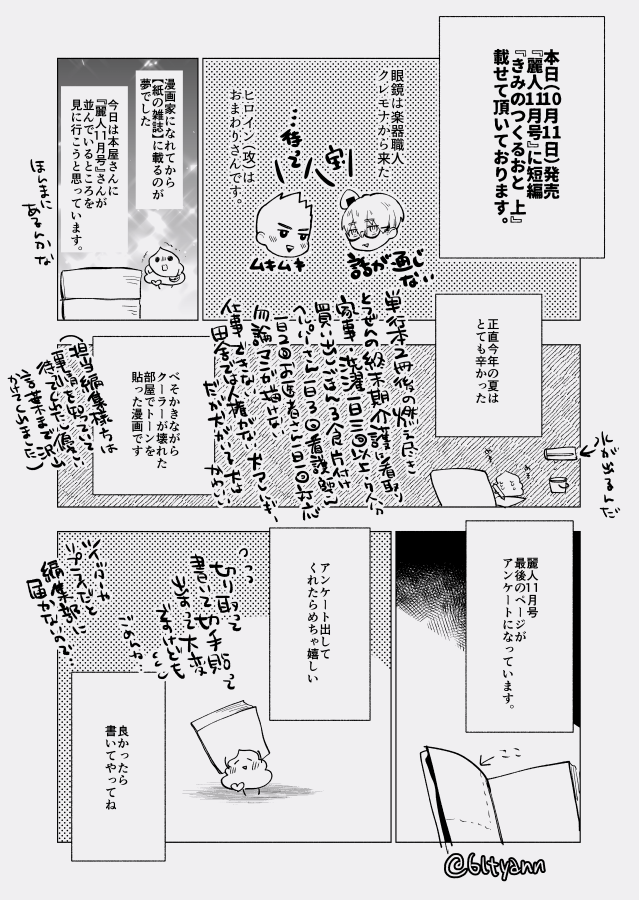 本日(10月11日)発売
『麗人11月号』に短編
『きみのつくるおと 上』
載せて頂いております。
眼鏡は楽器職人
クレモナから来た
八割
…待って
ヒロイン(攻)は
おまわりさんです。
ムキムキ
話が通じない
漫画家になれてから
【紙の雑誌】に載るのが
夢でした
今日は本屋さんに
『麗人11月号』さんが
並んでいるところを
見に行こうと思っています。
ほんまに
あるんかな
正直今年の夏は
とても辛かった
水が出るんだ
単行本2冊後の燃え尽き
とうぜんの終末期介護に看取り
家事・洗濯一日三回以上
買い出しごはん3食片付け
一日2回お医者さん日1回対応
勿論マンガ描けない
仕事できない
田舎では人権がない
だが犬がいて犬は
かわいい
べそかきながら
クーラーが壊れた
部屋でトーンを
貼った漫画です
(担当編集様たちは
事情を知っていて
待って下さり優しい
言葉まで沢山
かけてくれました)
麗人11月号
最後のページが
アンケートになっています。
ここ
アンケート出して
くれたらめちゃ嬉しい
切り取って
書いて切手貼って
出すって大変
ですけども
ごめんね…
ツイートや
プレゼだと
編集部に
届かないので…
良かったら
書いてやってね
@6ltyann